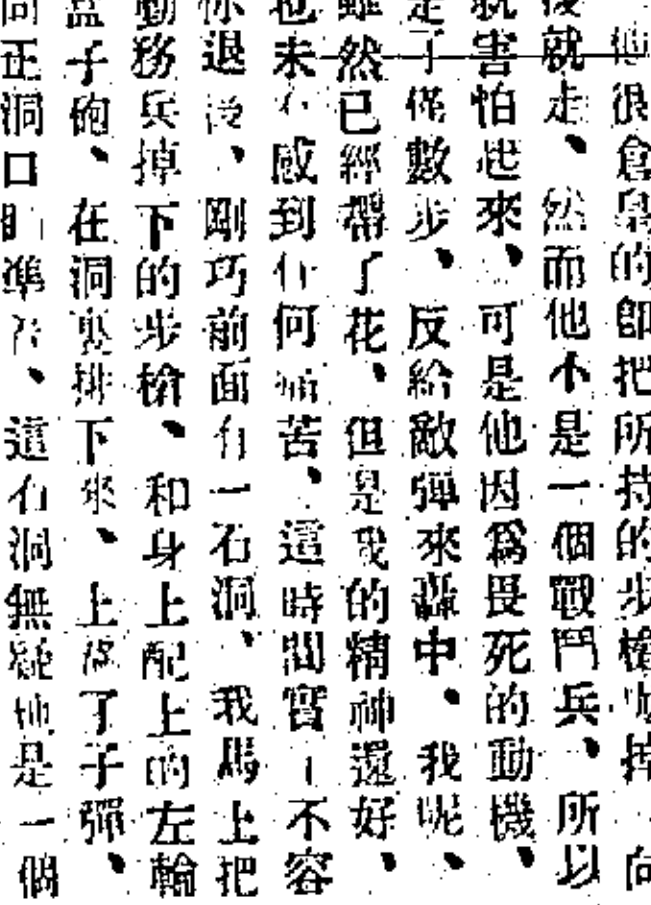 他很倉皇的卽把所持的步槍掉向
後就走、然而他不是一個戰鬥兵、所以
就害怕起來、可是他因爲畏死的動機、
走了僅數步、反給敵彈來轟中、我呢、
雖然已經帶了花、但是我的精神還好、
也未有感到任何痛苦、這時間實不容
你退後、剛巧前面有一石洞、我馬上把
勤務兵掉下的步槍、和身上配上的左輪
盒子砲、在洞裏排下來、上落了子彈、
向正洞口瞄準着、這石洞無疑地是一個